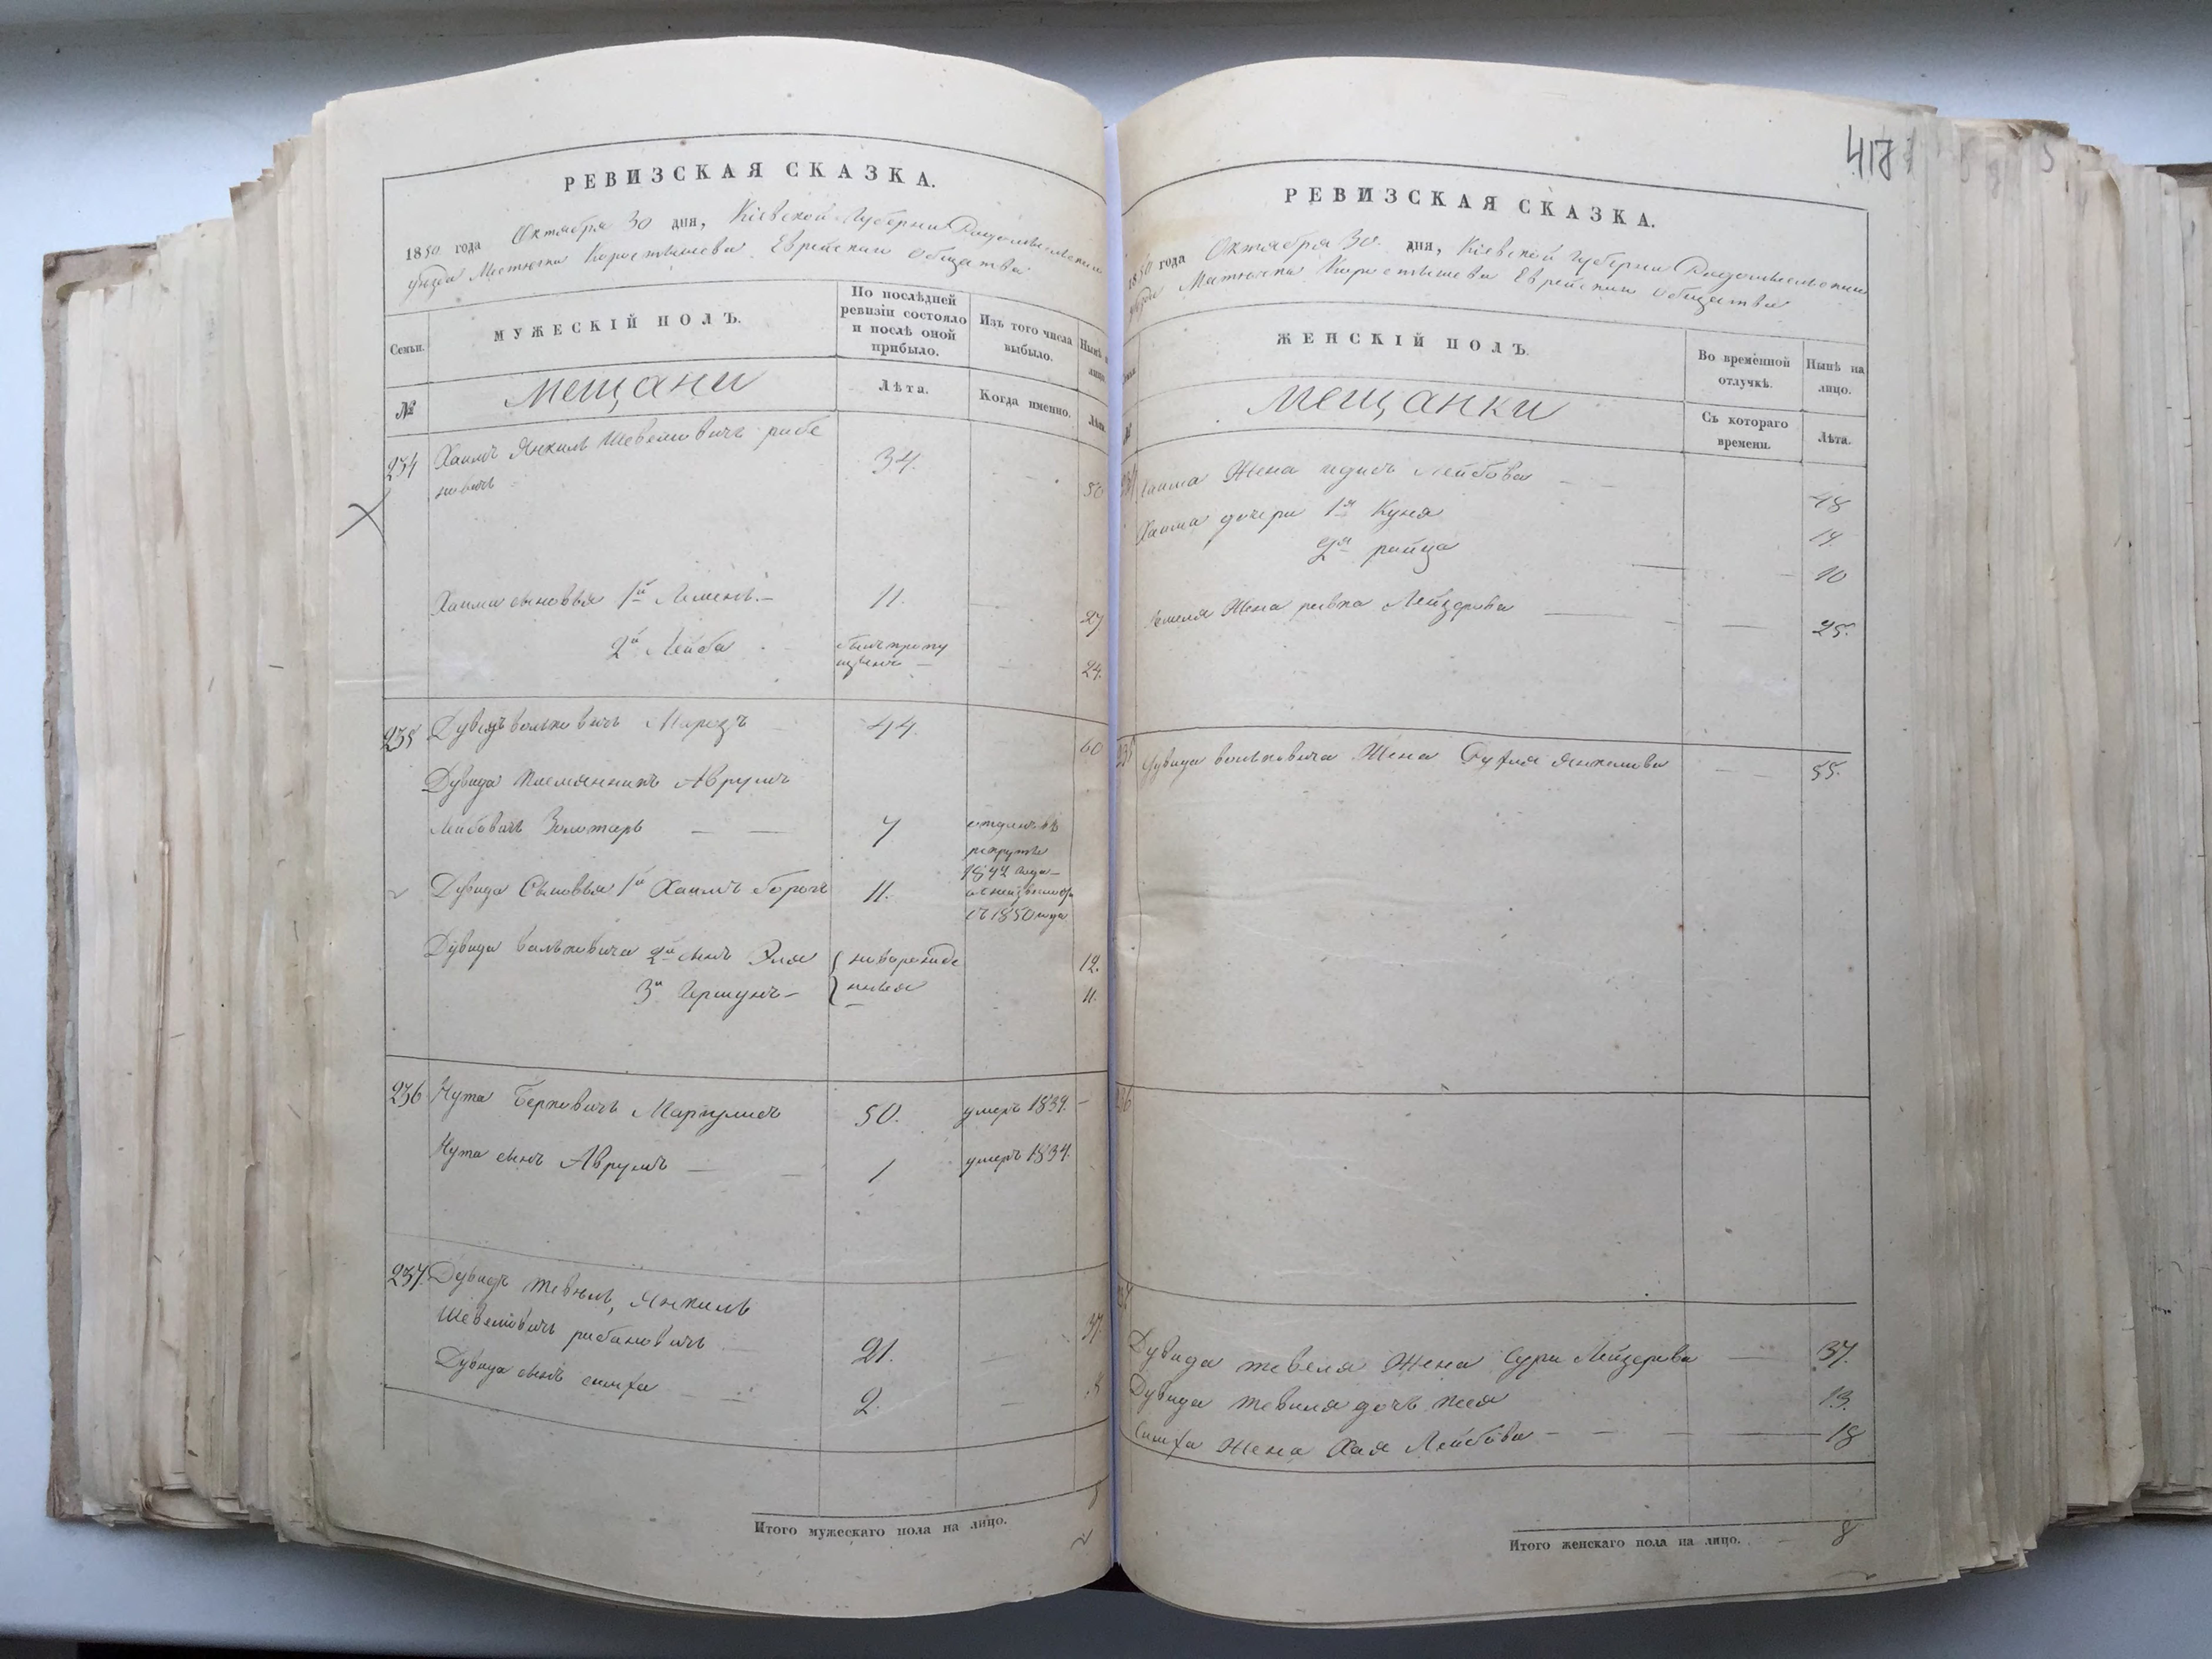 РЕВИЗСКАЯ СКАЗКА.
1850 года Октября 30 дня, Кіевской Губерніи Радомысльскаго
уезда Местечка Коростишева Еврейскаго общества
Семьи. МУЖЕСКІЙ ПОЛЪ. По послѣдней ревизіи состояло и послѣ оной прибыло. Изъ того числа выбыло. Нынѣ на лицо.
№ Мещани Лѣта. Когда именно. Лѣта.
234 Хаимъ Янкиль Шевелиовичъ рабе 34. 50
новичъ
Хаима сыновья 1й 11. 27
2й Лейба былъ пропу 24.
щенъ
235 Дувидъ Вольковичъ 44. 60
Дувида племянникъ Аврумъ
Лейбовичъ Золотарь 7 отданъ въ
рекруты
1842 года
Дувида Сыновья 1й Хаимъ Борохъ 11.
съ 1850 года
Дувида Вольковича 2й сынъ Эля новорожде 12.
3й Гершунъ нныя 11.
236 Нута Берковичъ Маргулисъ 50. умеръ 1839.
Нута сынъ Аврумъ 1 умеръ 1834.
237. Дувидъ Тевель, Янкиль
Шевелиовичъ рабановичъ 21. 37.
Дувида сынъ Симха 2.
Итого мужескаго пола на лицо.
418
РЕВИЗСКАЯ СКАЗКА.
1850 года Октября 30 дня, Кіевской Губерніи Радомысльскаго
уезда Местечка Коростишева Еврейскаго общества
ЖЕНСКІЙ ПОЛЪ. Во временной отлучкѣ. Нынѣ на лицо.
№ Мещанки Съ котораго времени. Лѣта.
Хаима Жена Лейбова 48
Хаима дочери 1я Куня 14.
2я райца 10
Жена ривка Лейзерова 25.
235 Дувида Вольковича Жена Янкелева 55.
236
237
Дувида Тевеля Жена Сура Лейзерова 37.
Дувида Тевеля дочь 13.
Симха Жена Хая Лейбова 18
Итого женскаго пола на лицо. 8